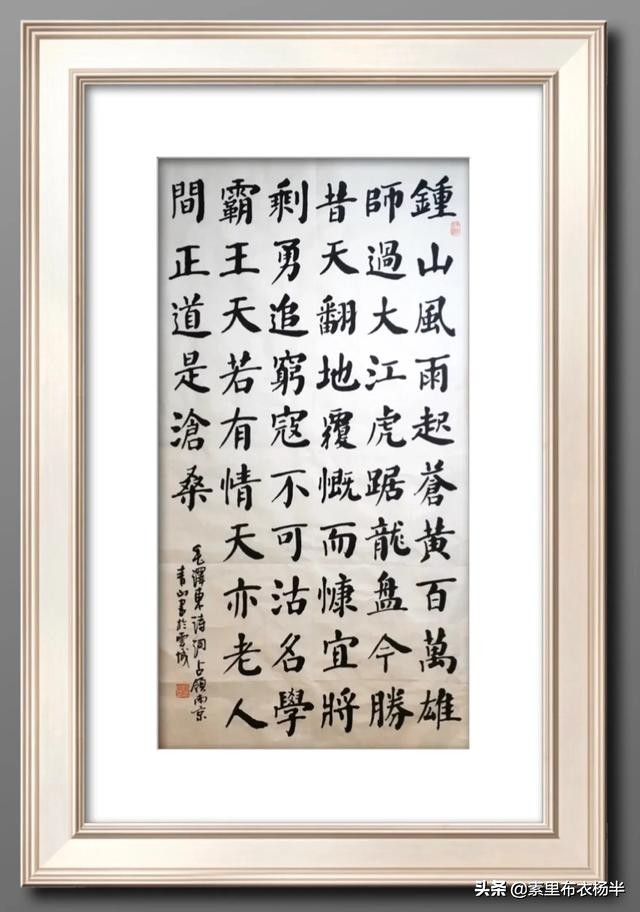 鍾山風雨起蒼黃百萬雄
師過大江虎踞龍盤今勝
昔天翻地覆慨而慷宜將
剩勇追窮寇不可沽名學
霸王天若有情天亦老人
間正道是滄桑
毛澤東诗词占領南京
青山書於雲城
头条 @素里布衣杨半